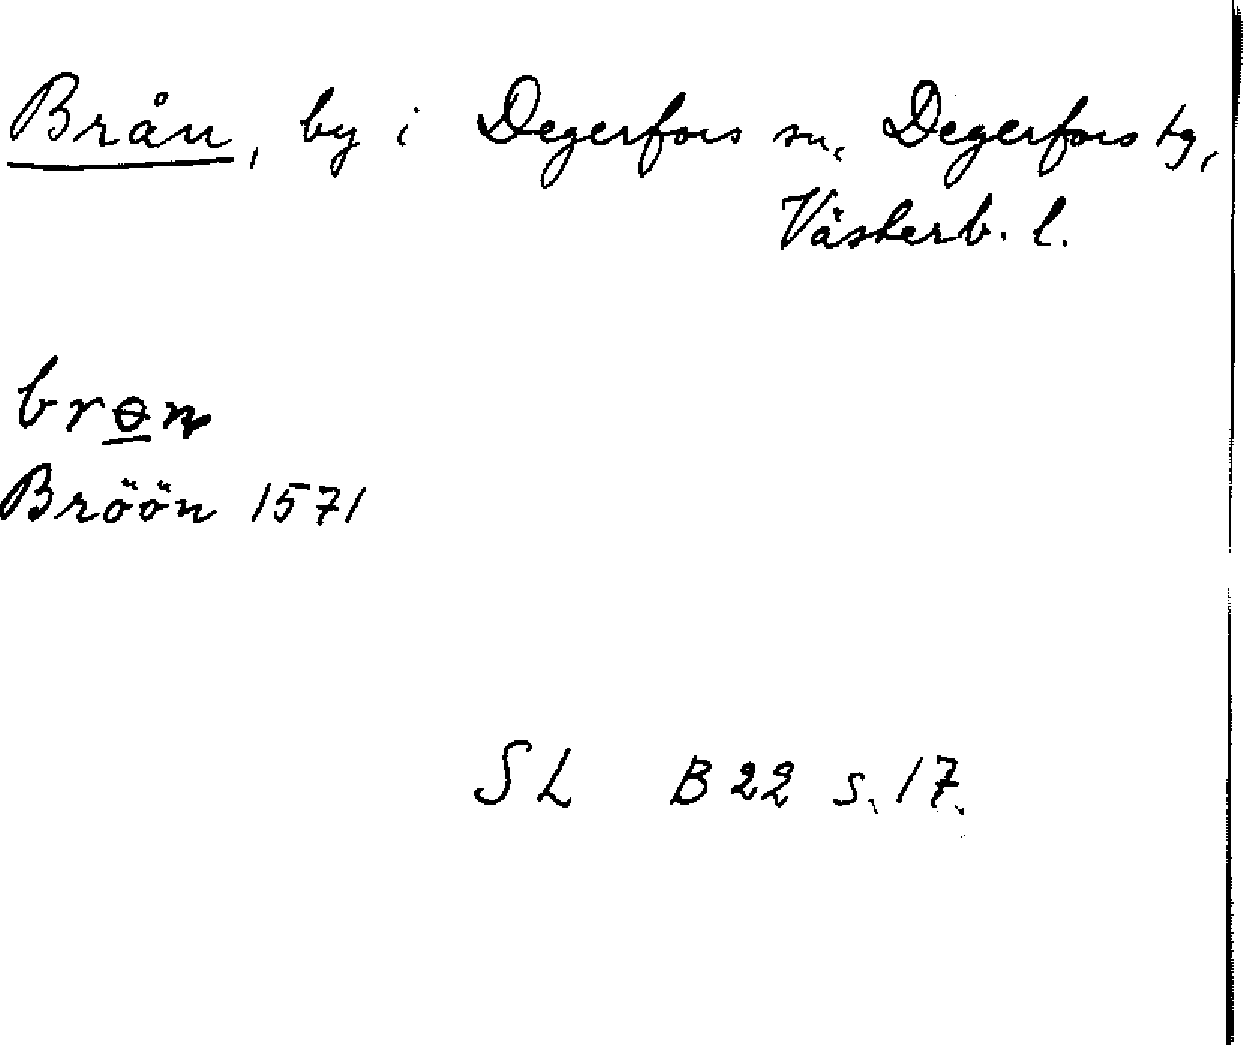 Brån, by i Degerfors sn, Degerfors tg,
Västerb. l.
brɵn
Bröön 1571
SL B 22 s. 17.